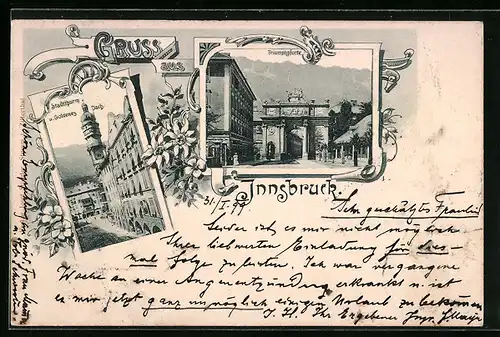 GRUSS
aus
Innsbruck.
Triumphpforte
Stadtthurm
u. Goldenes Dachl.
31/I. 99
Sehr geschätztes Fräulein!
Leider ist es mir nicht möglich
Ihrer liebwerten Einladung für dies-
mal folge zu leisten. Ich war vergangene
Woche an einer Augenentzündung erkrankt u. ist
es mir jetzt ganz unmöglich einigen Urlaub zu bekommen
Ihr Ergebener